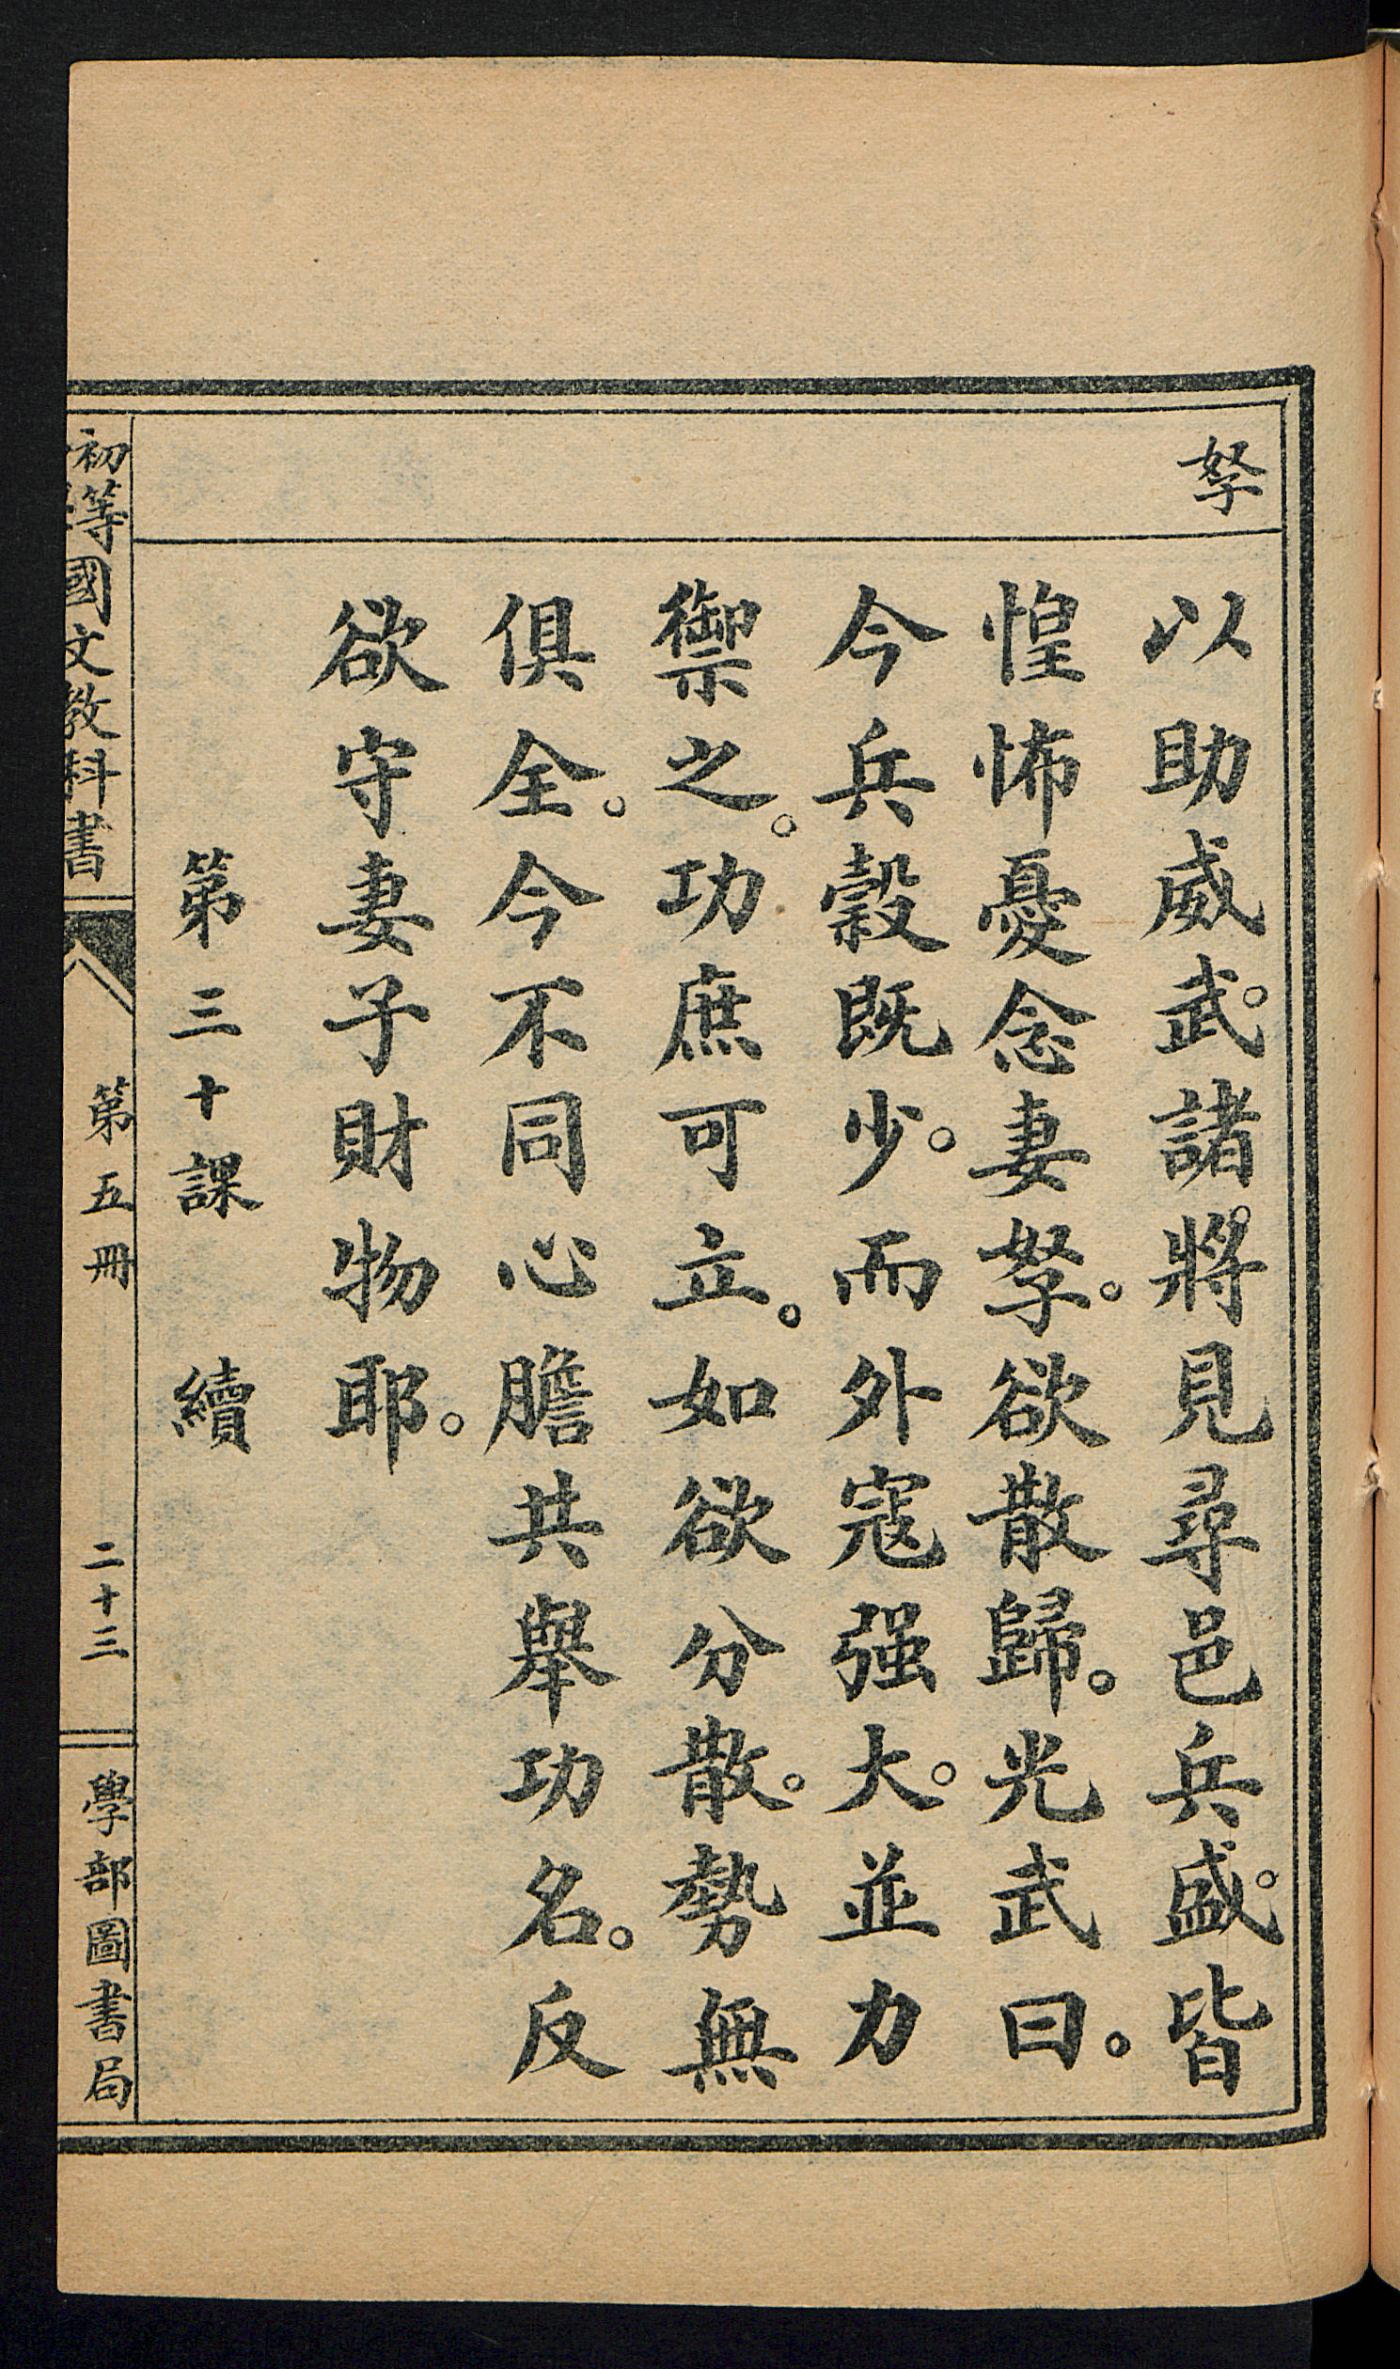 孥
以助威武。諸將。見尋邑兵盛。皆
惶怖憂念妻孥。欲散歸。光武曰。
今兵穀既少。而外寇强大。並力
禦之。功庶可立。如欲分散。勢無
俱全。今不同心膽共舉功名。反
欲守妻子財物耶。
第三十課 續
初等國文教科書
第五冊
二十三
學部圖書局